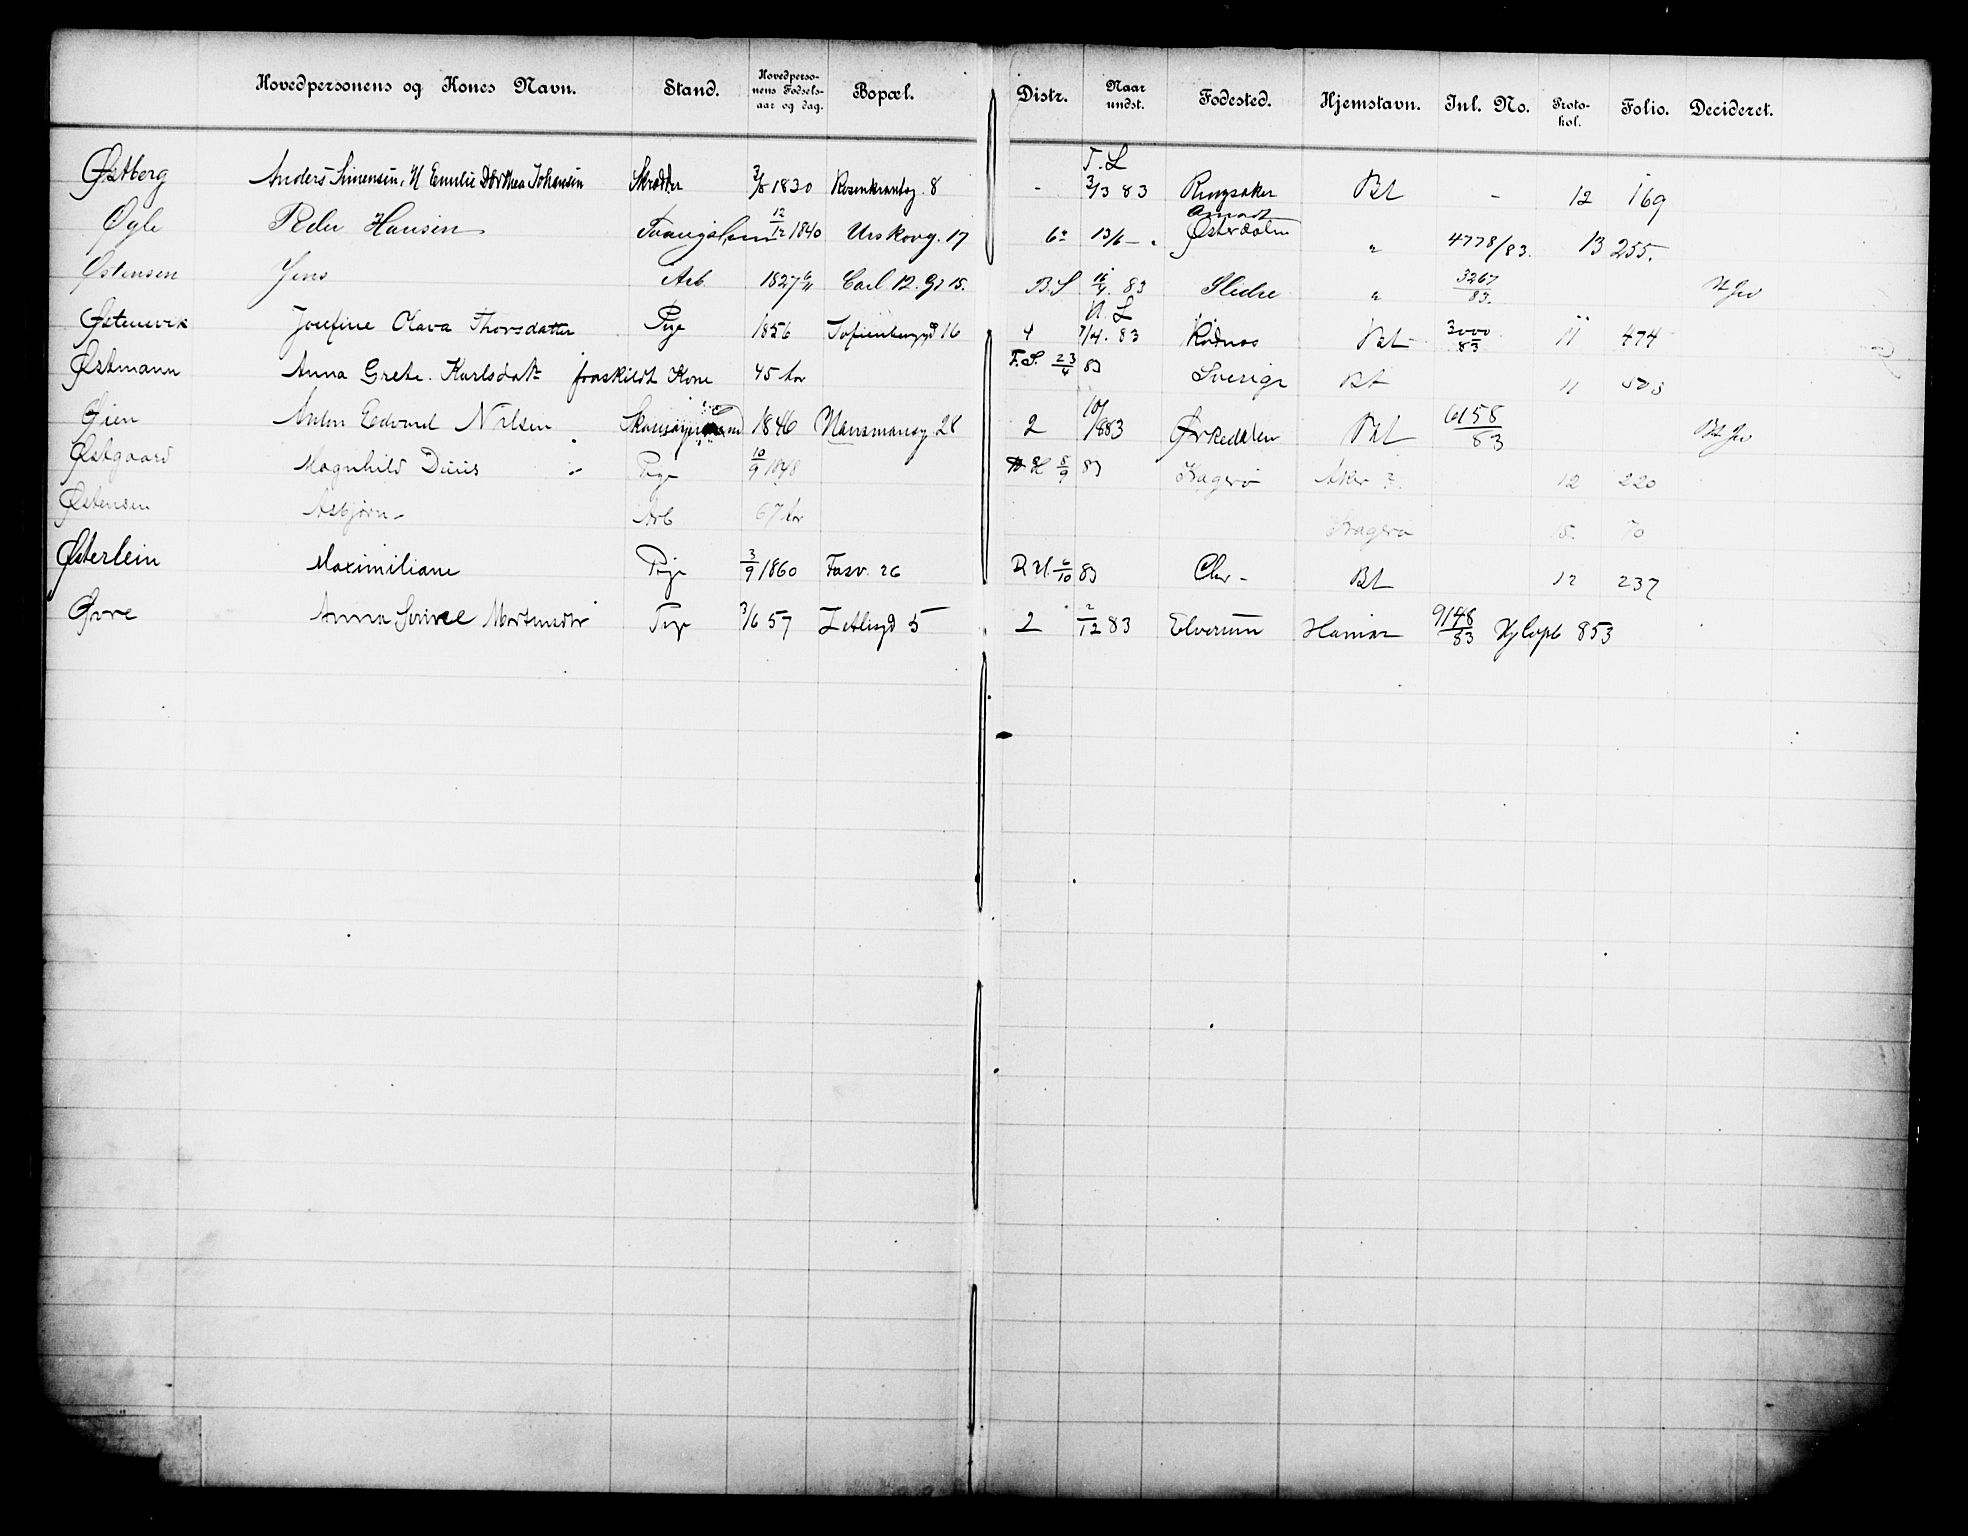 Hovedpersonens og Kones Navn. Stand. Hovedperso-nens Fødsels-aar og dag. Bopæl. Distr. Naar undst. Fødested. Hjemstavn. Inl. No. Proto-kol. Folio. Decideret.
Østberg Anders Simensen, H Emilie Dorthea Johansen Skrædder 1820 Rosenkrantsg. 8 - T. L 3/3 83 Ringsaker Bt - 12 169
Øgle Peder Hansen 12/12 1840 Urskovg. 17 6 13/6 - Østerdalen " 4778/83. 13 255.
Østensen Jens Arb 1827 Carl 12. Gd 15. B.S 83 Slidre " 3267/83.
Østensvik Josefine Olava Thorsdatter Pige 1856 Sofienberggd 16 4 A. L 7/4. 83 Bt 3000/83 11 474
Østmann Anna Grete Karlsdatr fraskildt Kone 45 Aar F.S. 23/4 83 Sverige Bt 11
Øien Anton Edvard Nilsen 1846 Mansmansg 28 2 10/8 83 Ørkedalen Bt 6158/83
Østgaard Magnhild Duus Pige 10/9 1848 H 8/9 83 Kragerø Aker ?. 12 220
Østensen Asbjørn - Arb 67 Aar Kragerø 15. 70
Østerlein Maximiliane Pige 3/9 1860 Fasv. 26 R.H. 6/10 83 Chr - Bt 12 237
Øvre Anna Mortensdtr Pige 3/6 57 Zetlitzgd 5 2 2/12 83 Elverum Hamar 9148/83 853